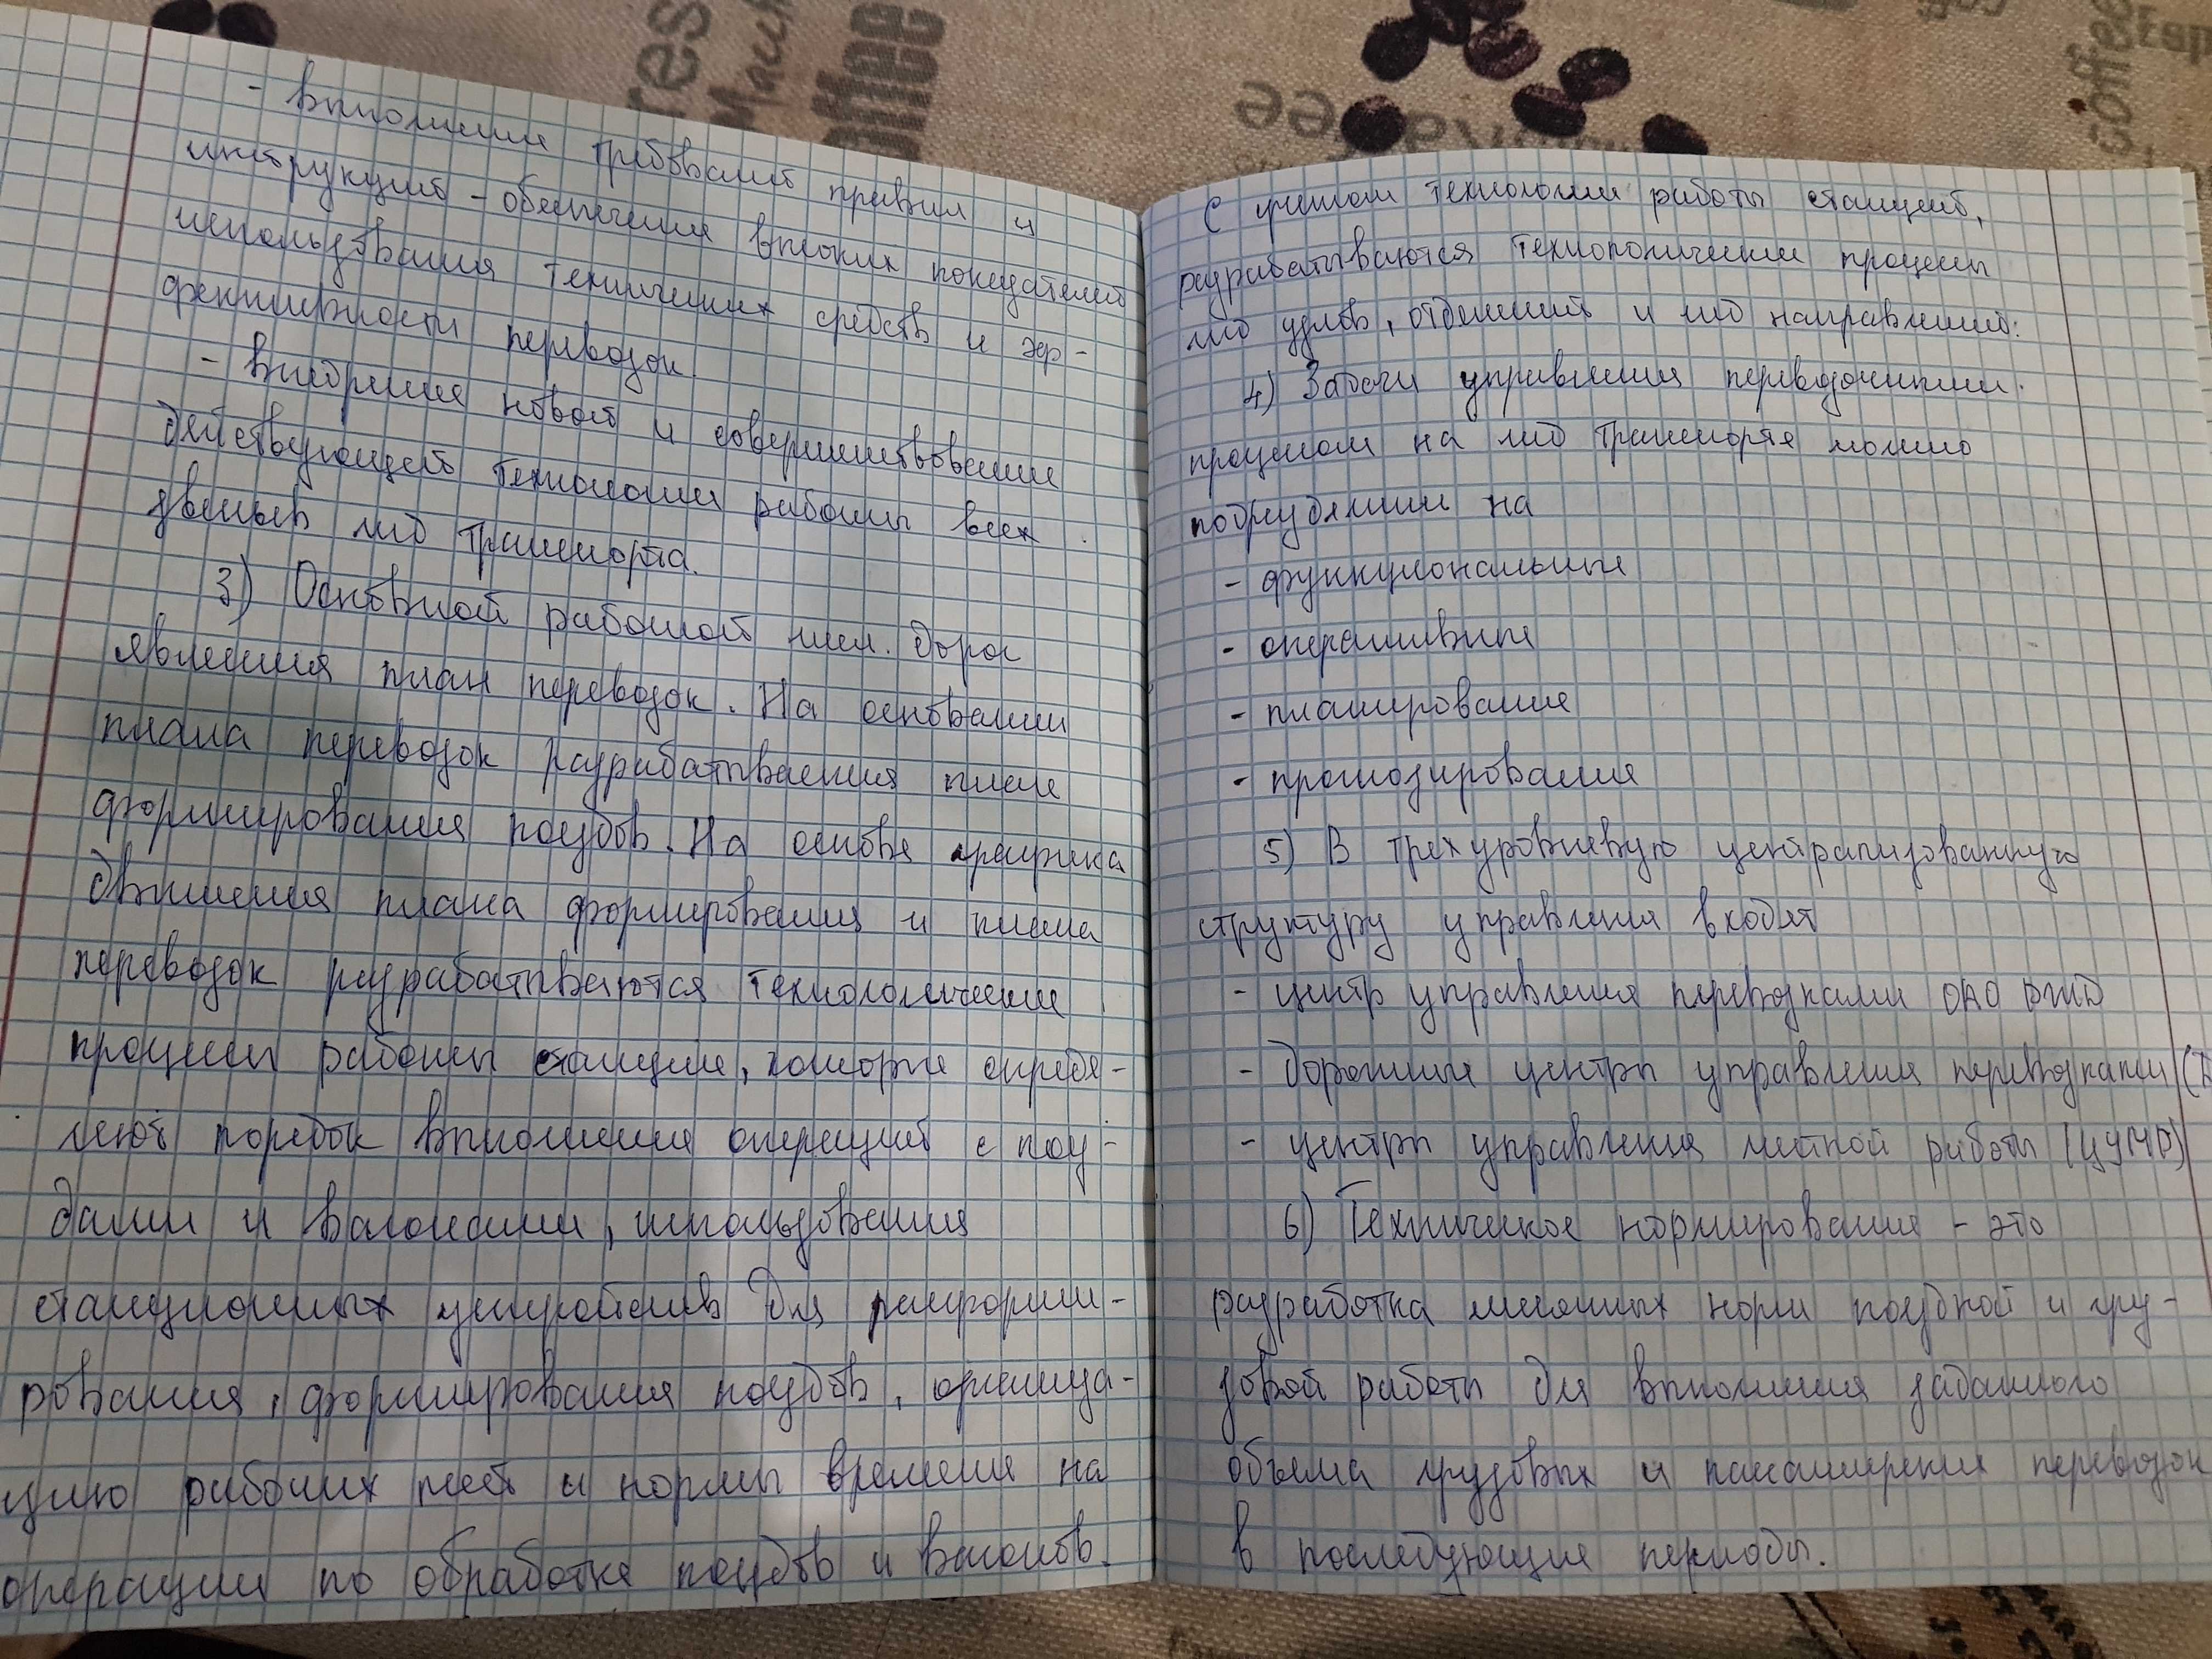 - выполнение требований правил и
инструкций - обеспечения высоких показателей
использования технических средств и эф-
фективности перевозок.
- внедрение новой и совершенствование
действующей технологии работы всех
звеньев жд транспорта.
3) Основной работой жел. дорог
является план перевозок. На основании
плана перевозок разрабатывается план
формирования поездов. На основе графика
движения плана формирования и плана
перевозок разрабатываются технологические
процессы работы станции, которые опреде-
ляют порядок выполнения операций с поез-
дами и вагонами, использования
станционных устройств для расформи-
рования, формирования поездов, организа-
цию рабочих мест и нормы времени на
операции по обработке поездов и вагонов.
С учетом технологии работы станций,
разрабатываются технологические процессы
жд узлов, отделений и жд направлений:
4) Задачи управления перевозочными
процессом на жд транспорте можно
подразделить на
- функциональные
- оперативные
- планирование
- прогнозирования
5) В трехуровневую централизованную
структуру управления входят
- центр управления перевозками ОАО РЖД
- дорожные центры управления перевозками
- центры управления местной работы (ЦУМР)
6) Техническое нормирование - это
разработка месячных норм поездной и гру-
зовой работы для выполнения заданного
объема грузовых и пассажирских перевозок
в последующие периоды.
coffee